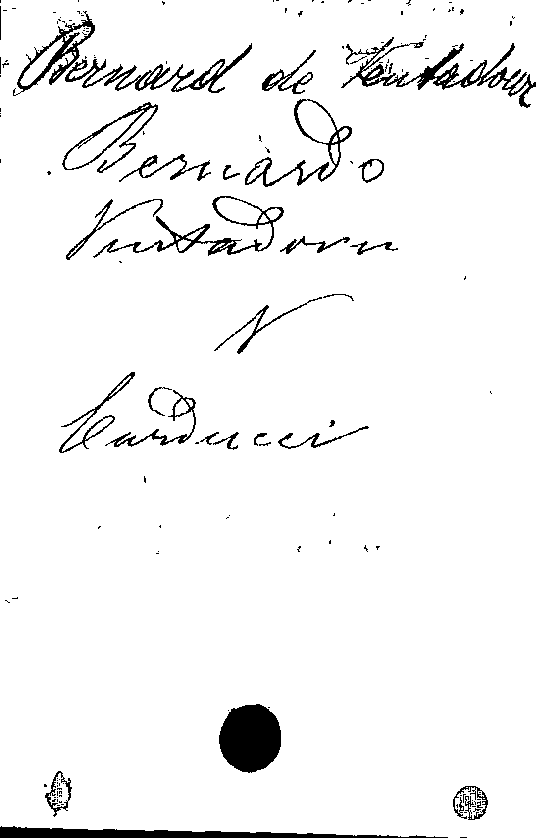 Bernard de Ventadour
Bernardo
Ventadorn
V
Carducci